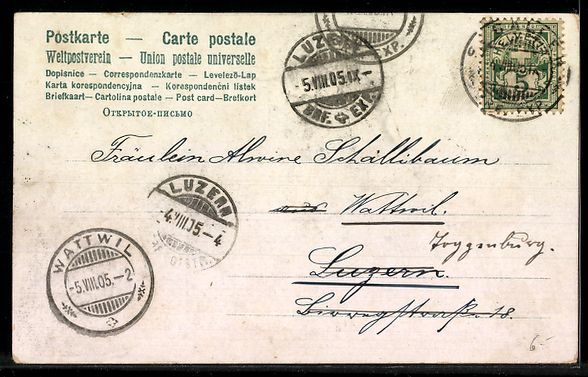 Postkarte — Carte postale
Weltpostverein — Union postale universelle
Dopisnice — Correspondenzkarte — Levelező-Lap
Karta korespondencyjna — Korespondenční lístek
Briefkaart — Cartolina postale — Post card — Brefkort
Открытое-письмо
EXP.
LUZERN
-5.VIII.05.IX-
BRF. EXP.
Fräulein Alwine Schällibaum
Wattwil.
Toggenburg.
Luzern.
LUZERN
-4.VIII.05.-4
WATTWIL
-5.VIII.05.-2
6.-